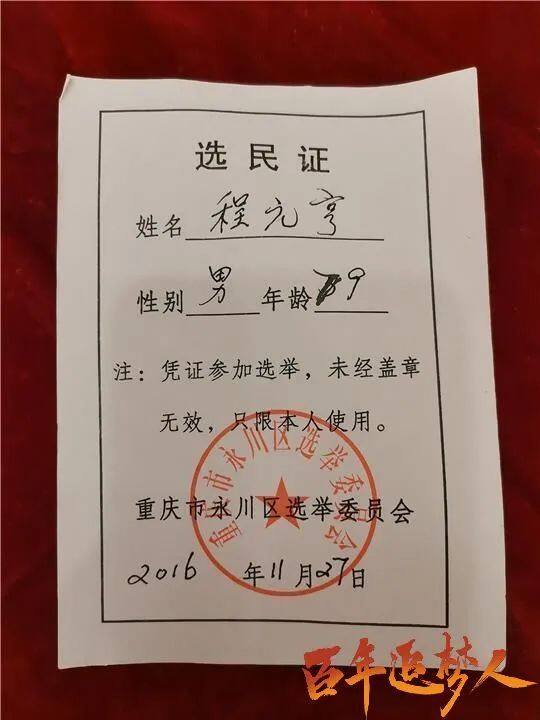 选民证
姓名 程元亨
性别 男 年龄 79
注：凭证参加选举，未经盖章
无效，只限本人使用。
重庆市永川区选举委员会
重庆市永川区选举委员会
2016 年 11 月 27 日
百年追梦人